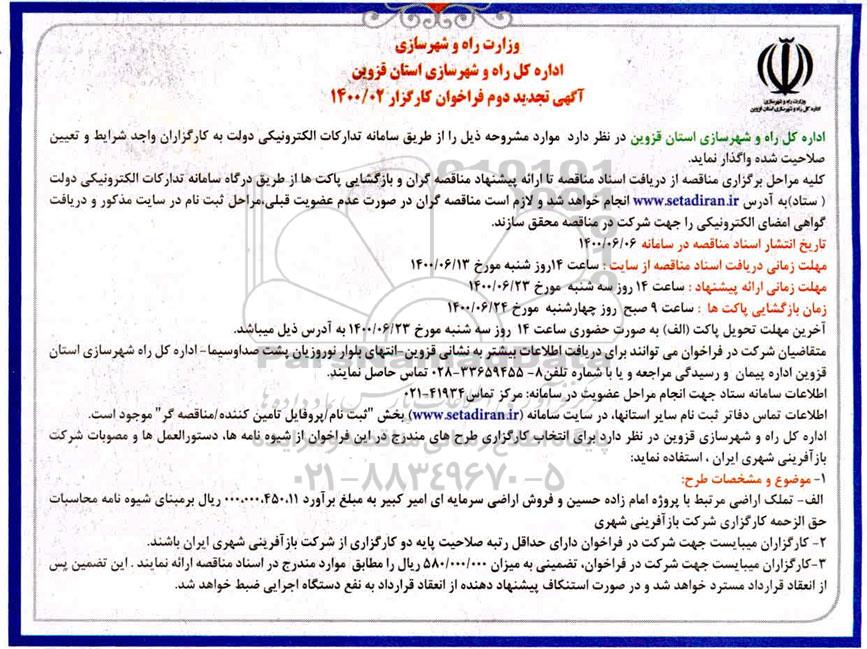 وزارت راه و شهرسازی
اداره کل راه و شهرسازی استان قزوین
آگهی تجدید دوم فراخوان کارگزار ۱۴۰۰/۰۲
وزارت راه و شهرسازی
اداره کل راه و شهرسازی استان قزوین
اداره کل راه و شهرسازی استان قزوین در نظر دارد موارد مشروحه ذیل را از طریق سامانه تدارکات الکترونیکی دولت به کارگزاران واجد شرایط و تعیین
صلاحیت شده واگذار نماید.
کلیه مراحل برگزاری مناقصه از دریافت اسناد مناقصه تا ارائه پیشنهاد مناقصه گران و بازگشایی پاکت ها از طریق درگاه سامانه تدارکات الکترونیکی دولت
( ستاد)به آدرس www.setadiran.ir انجام خواهد شد و لازم است مناقصه گران در صورت عدم عضویت قبلی،مراحل ثبت نام در سایت مذکور و دریافت
گواهی امضای الکترونیکی را جهت شرکت در مناقصه محقق سازند.
تاریخ انتشار اسناد مناقصه در سامانه ۱۴۰۰/۰۶/۰۶
مهلت زمانی دریافت اسناد مناقصه از سایت : ساعت ۱۴روز شنبه مورخ ۱۴۰۰/۰۶/۱۳
مهلت زمانی ارائه پیشنهاد : ساعت ۱۴ روز سه شنبه مورخ ۱۴۰۰/۰۶/۲۳
زمان بازگشایی پاکت ها : ساعت ۹ صبح روز چهارشنبه مورخ ۱۴۰۰/۰۶/۲۴
آخرین مهلت تحویل پاکت (الف) به صورت حضوری ساعت ۱۴ روز سه شنبه مورخ ۱۴۰۰/۰۶/۲۳ به آدرس ذیل میباشد.
متقاضیان شرکت در فراخوان می توانند برای دریافت اطلاعات بیشتر به نشانی قزوین-انتهای بلوار نوروزیان پشت صداوسیما- اداره کل راه شهرسازی استان
قزوین اداره پیمان و رسیدگی مراجعه و یا با شماره تلفن۸- ۳۳۶۵۹۴۵۵-۰۲۸ تماس حاصل نمایند.
اطلاعات سامانه ستاد جهت انجام مراحل عضویت در سامانه: مرکز تماس۴۱۹۳۴-۰۲۱
اطلاعات تماس دفاتر ثبت نام سایر استانها، در سایت سامانه (www.setadiran.ir) بخش "ثبت نام/پروفایل تامین کننده/مناقصه گر" موجود است.
اداره کل راه و شهرسازی قزوین در نظر دارد برای انتخاب کارگزاری طرح های مندرج در این فراخوان از شیوه نامه ها، دستورالعمل ها و مصوبات شرکت
بازآفرینی شهری ایران ، استفاده نماید:
۱- موضوع و مشخصات طرح:
الف- تملک اراضی مرتبط با پروژه امام زاده حسین و فروش اراضی سرمایه ای امیر کبیر به مبلغ برآورد ۰۰۰.۰۰۰.۴۵۰.۱۱ ریال برمبنای شیوه نامه محاسبات
حق الزحمه کارگزاری شرکت بازآفرینی شهری
۲- کارگزاران میبایست جهت شرکت در فراخوان دارای حداقل رتبه صلاحیت پایه دو کارگزاری از شرکت بازآفرینی شهری ایران باشند.
۳-کارگزاران میبایست جهت شرکت در فراخوان، تضمینی به میزان ۵۸۰/۰۰۰/۰۰۰ ریال را مطابق موارد مندرج در اسناد مناقصه ارائه نمایند . این تضمین پس
از انعقاد قرارداد مسترد خواهد شد و در صورت استنکاف پیشنهاد دهنده از انعقاد قرارداد به نفع دستگاه اجرایی ضبط خواهد شد.
ParsNamadData
پایگاه اطلاع رسانی مناقصه و مزایده
۰۲۱-۸۸۳۴۹۶۷۰-۵